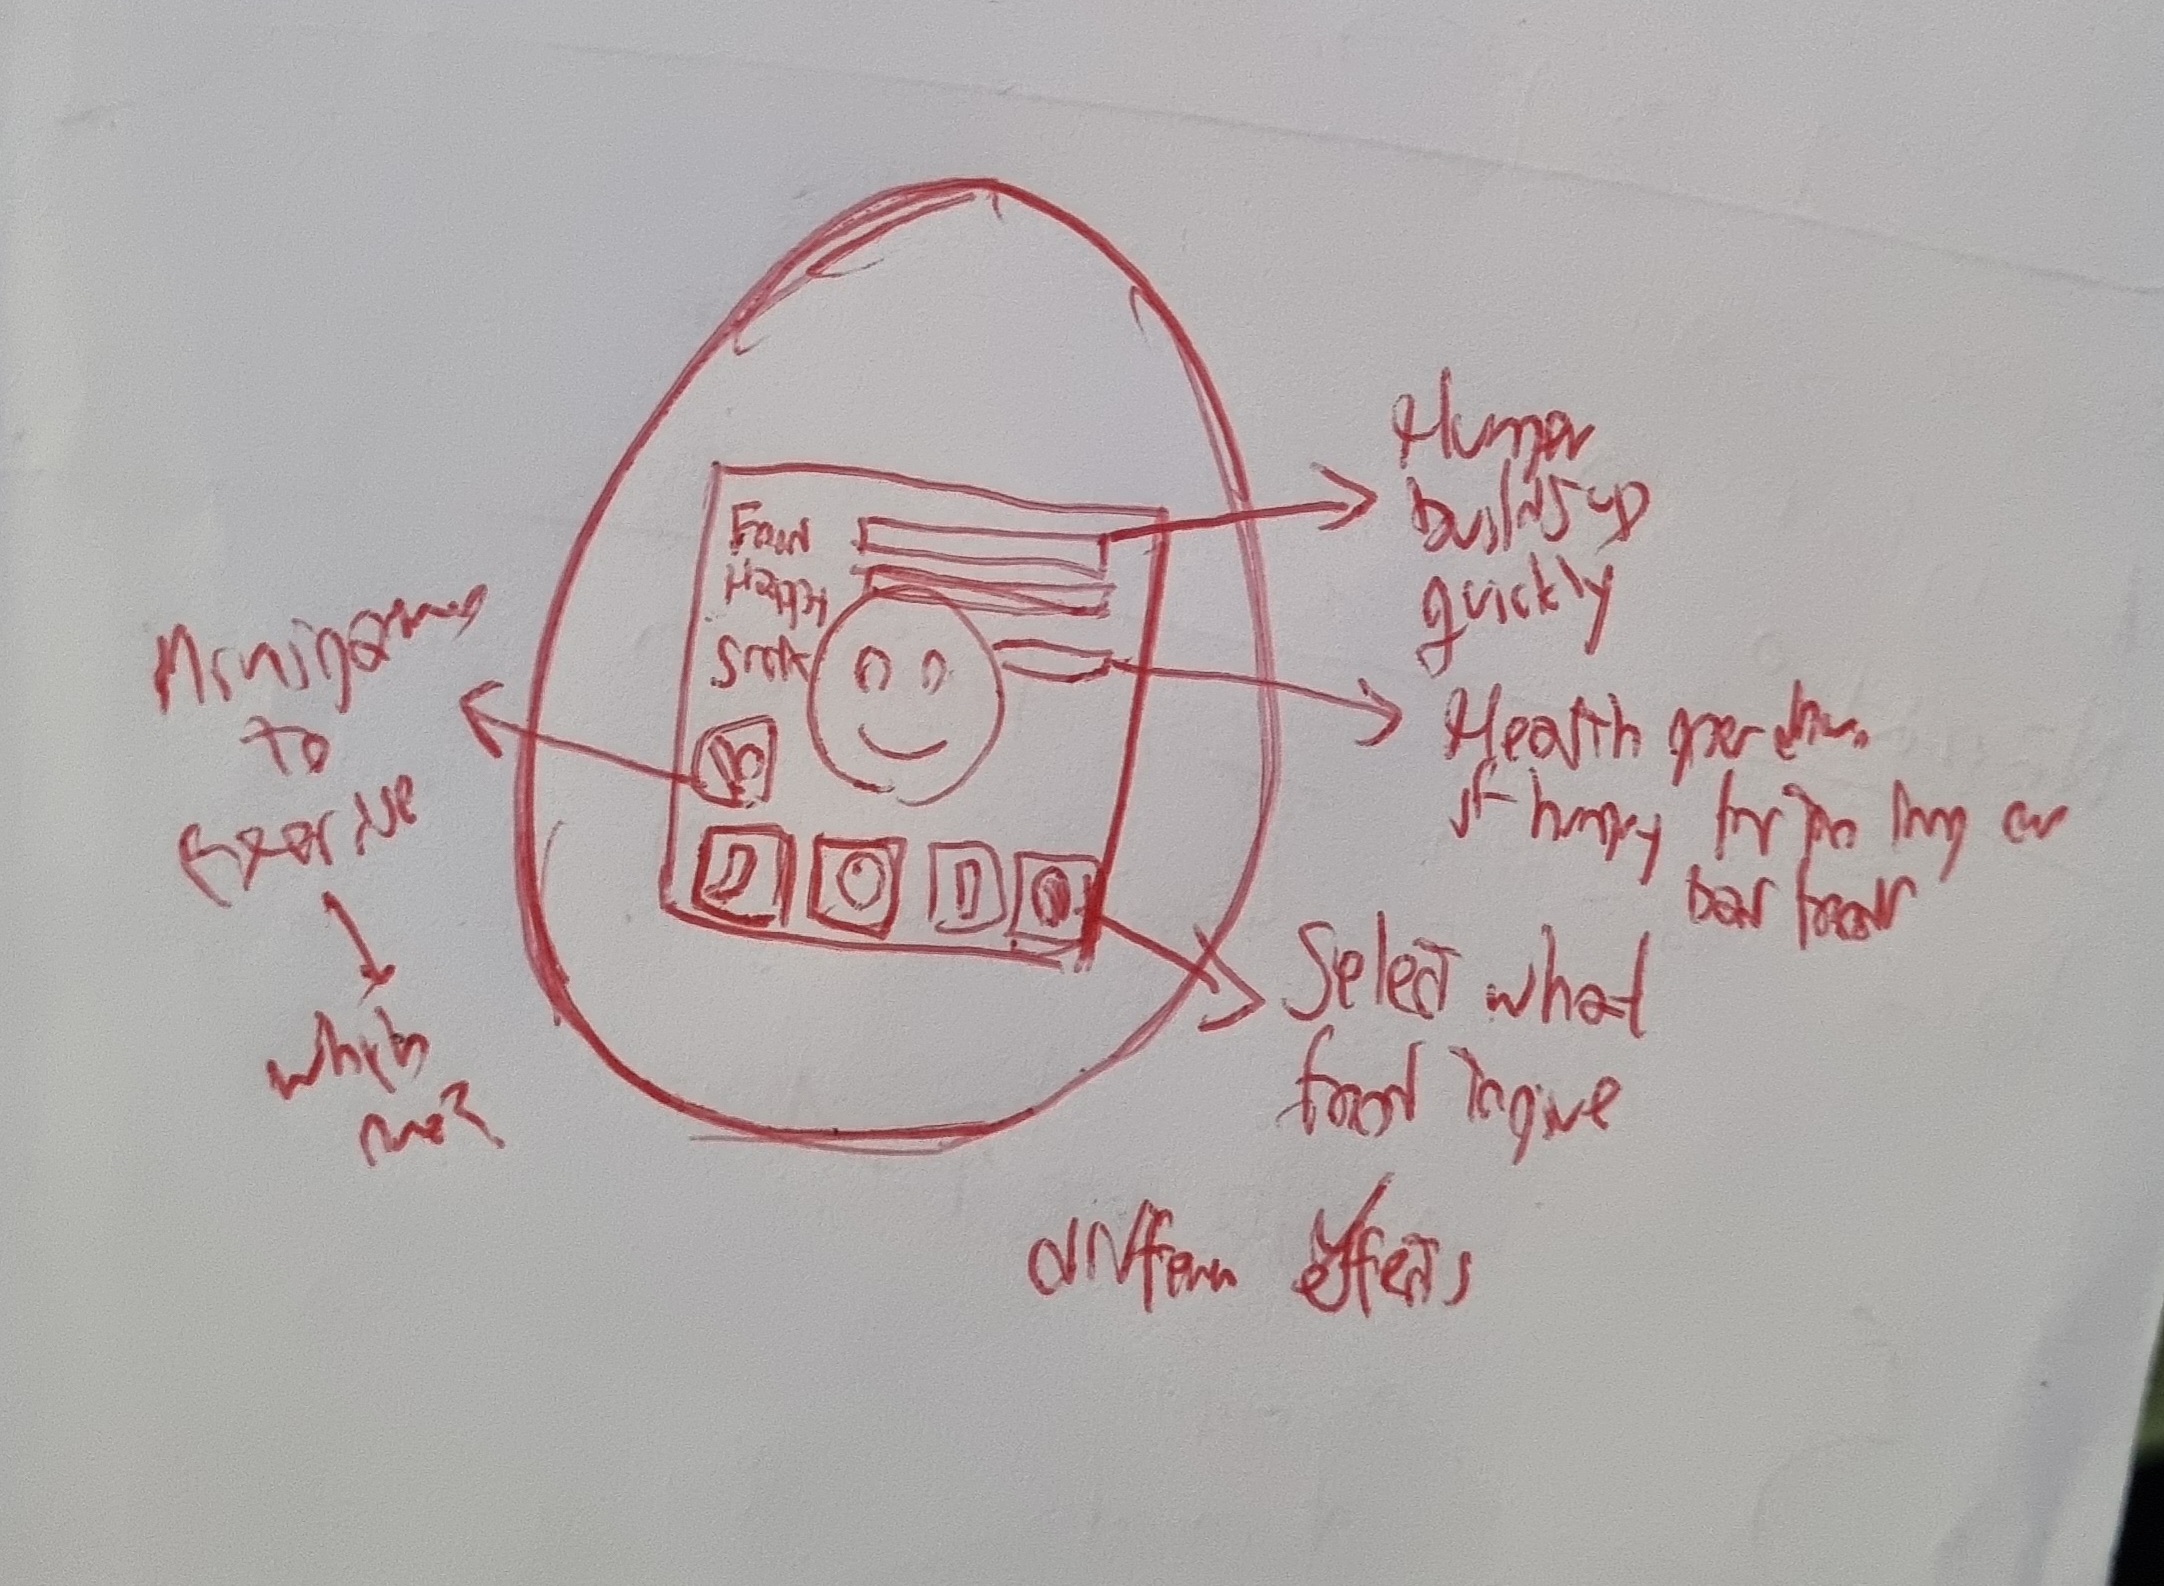 Food
Happy
Sick
Hunger
builds up
quickly
Health goes down
if hungry for too long or
bad food
Select what
food to give
different effects
Minigames
to
exercise
which
one?